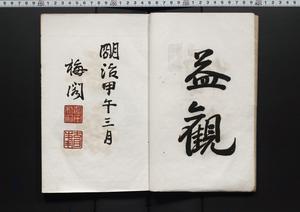 益
觀
明治甲午三月
梅閣